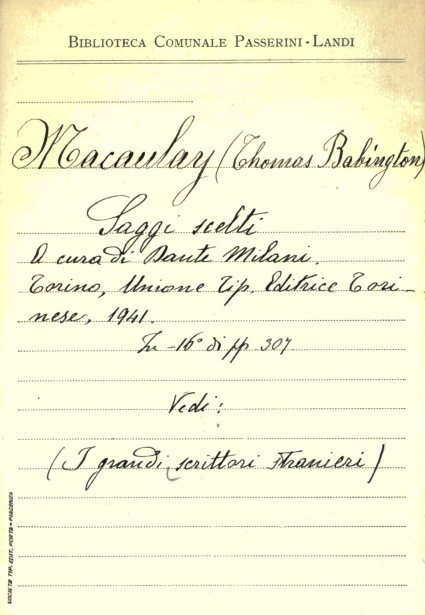 BIBLIOTECA COMUNALE PASSERINI-LANDI
Macaulay (Thomas Babington)
Saggi scelti
A cura di Dante Milani.
Torino, Unione Tip. Editrice Tori-
nese, 1941.
In-16° di pp 307
Vedi:
(I grandi scrittori stranieri)
SOCIETÀ TIP. EDIT. PORTA-PIACENZA